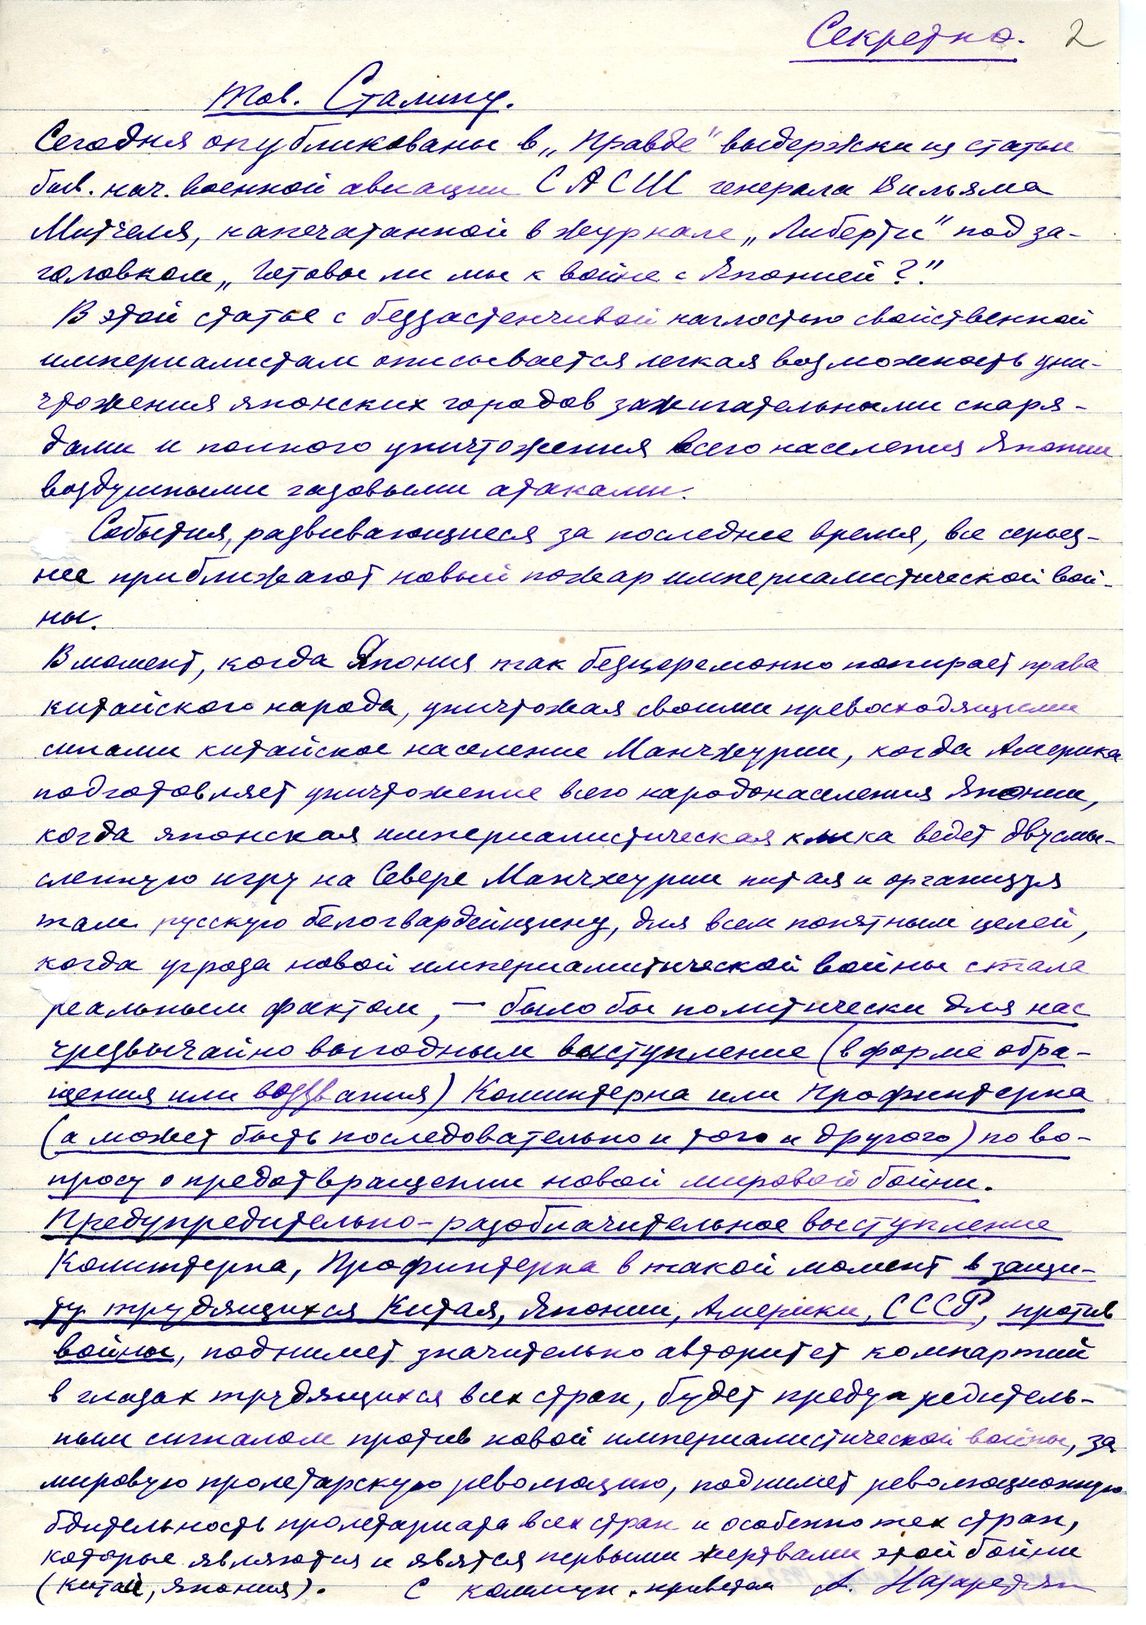 Секретно. 2
тов. Сталину.
Сегодня опубликованы в „Правде" выдержки из статьи
быв. нач. военной авиации САСШ генерала Вильяма
Митчеля, напечатанной в журнале „Либерти" под за-
головком „Готовы ли мы к войне с Японией?".
В этой статье с беззастенчивой наглостью свойственной
империалистам описывается легкая возможность уни-
чтожения японских городов зажигательными снаря-
дами и полного уничтожения всего населения Японии
воздушными газовыми атаками.
События, развивающиеся за последнее время, все серьез-
нее приближают новый пожар империалистической вой-
ны.
В момент, когда Япония так безцеремонно попирает права
китайского народа, уничтожая своими превосходящими
силами китайское население Манчжурии, когда Америка
подготовляет уничтожение всего народонаселения Японии,
когда японская империалистическая клика ведет двусмы-
сленную игру на Севере Манчжурии питая и организуя
там русскую белогвардейщину, для всем понятных целей,
когда угроза новой империалистической войны стала
реальным фактом, — было бы политически для нас
чрезвычайно выгодным выступление (в форме обра-
щения или воззвания) Коминтерна или Профинтерна
(а может быть последовательно и того и другого) по во-
просу о предотвращении новой мировой бойни.
Предупредительно-разоблачительное выступление
Коминтерна, Профинтерна в такой момент в защи-
ту трудящихся Китая, Японии, Америки, СССР, против
войны, поднимет значительно авторитет компартий
в глазах трудящихся всех стран, будет предупредитель-
ным сигналом против новой империалистической войны, за
мировую пролетарскую революцию, поднимет революционную
бдительность пролетариата всех стран и особенно тех стран,
которые являются и явятся первыми жертвами этой бойни
(Китай, Япония). С коммун. приветом А. Назаретян